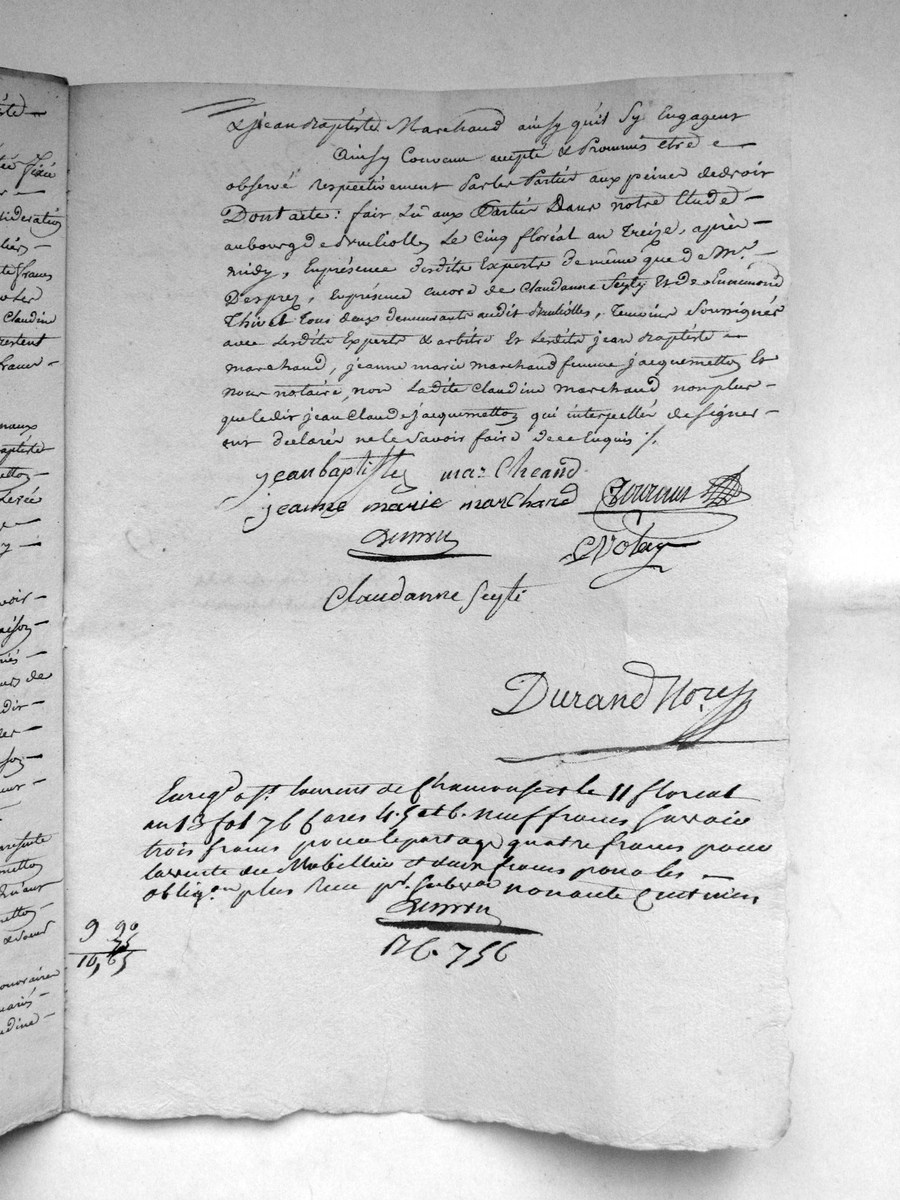 & jean Baptiste Marchand ainsy qu'il Sy Engagent
Ainsy Convenu accepté & Promis etre
observé respectivement Par les Parties aux peines de droit
Dont acte : fait Lû aux Parties Dans notre Etude
au bourg de Le Cinq floréal an Treize, après
midy, En présence desdits Experts de même que de Mr.
Desprez, En présence encore de Claudanne Seyty Et de
Thivel Tous deux demeurants audit Temoins Soussignés
avec Lesdits Experts & arbitre Et Ledit jean Baptiste
marchand, jeanne marie marchand femme jacquemetton Et
Nous notaire, non Ladite Claudine Marchand non plus
que ledit jean Claude jacquemetton qui interpellés de signer
ont declarés ne le savoir faire de ce Enquis ./.
jean baptiste marcheand
jeanne marie marchand
Claudanne Seyté
Durand Nore
Enregé a st. laurent de Chamousset le 11 floreal
an 13 fol 76 cares 4. 5 et 6. neuf francs savoir
trois francs pour le partage quatre francs pour
la vente du Mobillier et deux francs pour les
obligaon plus Recu pr. subvon nonante centimes
9 90
75
10,65
76. 756